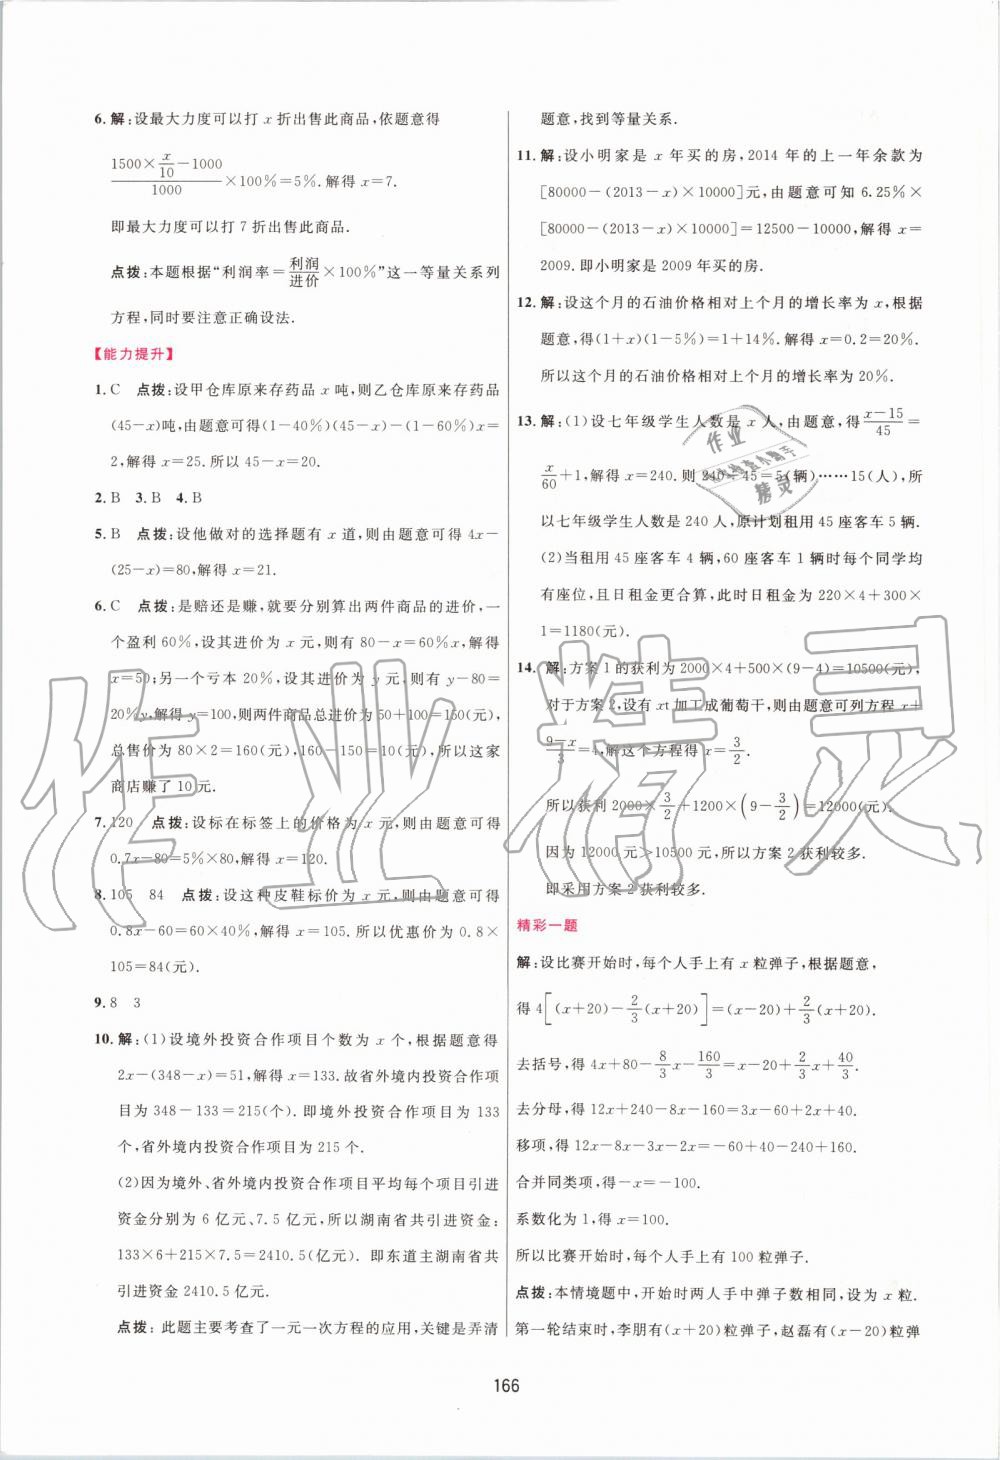 6. 解:设最大力度可以打 x 折出售此商品,依题意得
(1500×x/10−1000)/1000×100%=5%. 解得 x=7.
即最大力度可以打 7 折出售此商品.
点拨:本题根据“利润率=利润/进价×100%”这一等量关系列
方程,同时要注意正确设法.
【能力提升】
1. C 点拨:设甲仓库原来存药品 x 吨,则乙仓库原来存药品
(45−x)吨,由题意可得(1−40%)(45−x)−(1−60%)x=
2,解得 x=25. 所以 45−x=20.
2. B 3. B 4. B
5. B 点拨:设他做对的选择题有 x 道,则由题意可得 4x−
(25−x)=80,解得 x=21.
6. C 点拨:是赔还是赚,就要分别算出两件商品的进价,一
个盈利 60%,设其进价为 x 元,则有 80−x=60%x,解得
x=50;另一个亏本 20%,设其进价为 y 元,则有 y−80=
20%y,解得 y=100,则两件商品总进价为 50+100=150(元),
总售价为 80×2=160(元),160−150=10(元),所以这家
商店赚了 10 元.
7. 120 点拨:设标在标签上的价格为 x 元,则由题意可得
0.7x−80=5%×80,解得 x=120.
8. 105 84 点拨:设这种皮鞋标价为 x 元,则由题意可得
0.8x−60=60×40%,解得 x=105. 所以优惠价为 0.8×
105=84(元).
9. 8 3
10. 解:(1)设境外投资合作项目个数为 x 个,根据题意得
2x−(348−x)=51,解得 x=133. 故省外境内投资合作项
目为 348−133=215(个). 即境外投资合作项目为 133
个,省外境内投资合作项目为 215 个.
(2)因为境外、省外境内投资合作项目平均每个项目引进
资金分别为 6 亿元、7.5 亿元,所以湖南省共引进资金:
133×6+215×7.5=2410.5(亿元). 即东道主湖南省共
引进资金 2410.5 亿元.
点拨: 此题主要考查了一元一次方程的应用,关键是弄清
题意,找到等量关系.
11. 解:设小明家是 x 年买的房,2014 年的上一年余款为
[80000−(2013−x)×10000]元,由题意可知 6.25%×
[80000−(2013−x)×10000]=12500−10000,解得 x=
2009. 即小明家是 2009 年买的房.
12. 解:设这个月的石油价格相对上个月的增长率为 x,根据
题意,得(1+x)(1−5%)=1+14%. 解得 x=0.2=20%.
所以这个月的石油价格相对上个月的增长率为 20%.
13. 解:(1)设七年级学生人数是 x 人,由题意,得(x−15)/45=
x/60+1,解得 x=240. 则 240÷45=5(辆)……15(人),所
以七年级学生人数是 240 人,原计划租用 45 座客车 5 辆.
(2)当租用 45 座客车 4 辆,60 座客车 1 辆时每个同学均
有座位,且日租金更合算,此时日租金为 220×4+300×
1=1180(元).
14. 解:方案 1 的获利为 2000×4+500×(9−4)=10500(元),
对于方案 2,设有 xt 加工成葡萄干,由题意可列方程 x+
(9−x)/3=4,解这个方程得 x=3/2.
所以获利 2000×3/2+1200×(9−3/2)=12000(元).
因为 12000 元>10500 元,所以方案 2 获利较多.
即采用方案 2 获利较多.
精彩一题
解:设比赛开始时,每个人手上有 x 粒弹子,根据题意,
得 4[(x+20)−2/3(x+20)]=(x−20)+2/3(x+20).
去括号,得 4x+80−8/3x−160/3=x−20+2/3x+40/3.
去分母,得 12x+240−8x−160=3x−60+2x+40.
移项,得 12x−8x−3x−2x=−60+40−240+160.
合并同类项,得−x=−100.
系数化为 1,得 x=100.
所以比赛开始时,每个人手上有 100 粒弹子.
点拨:本情境题中,开始时两人手中弹子数相同,设为 x 粒.
第一轮结束时,李朋有(x+20)粒弹子,赵磊有(x−20)粒弹
166
作业精灵